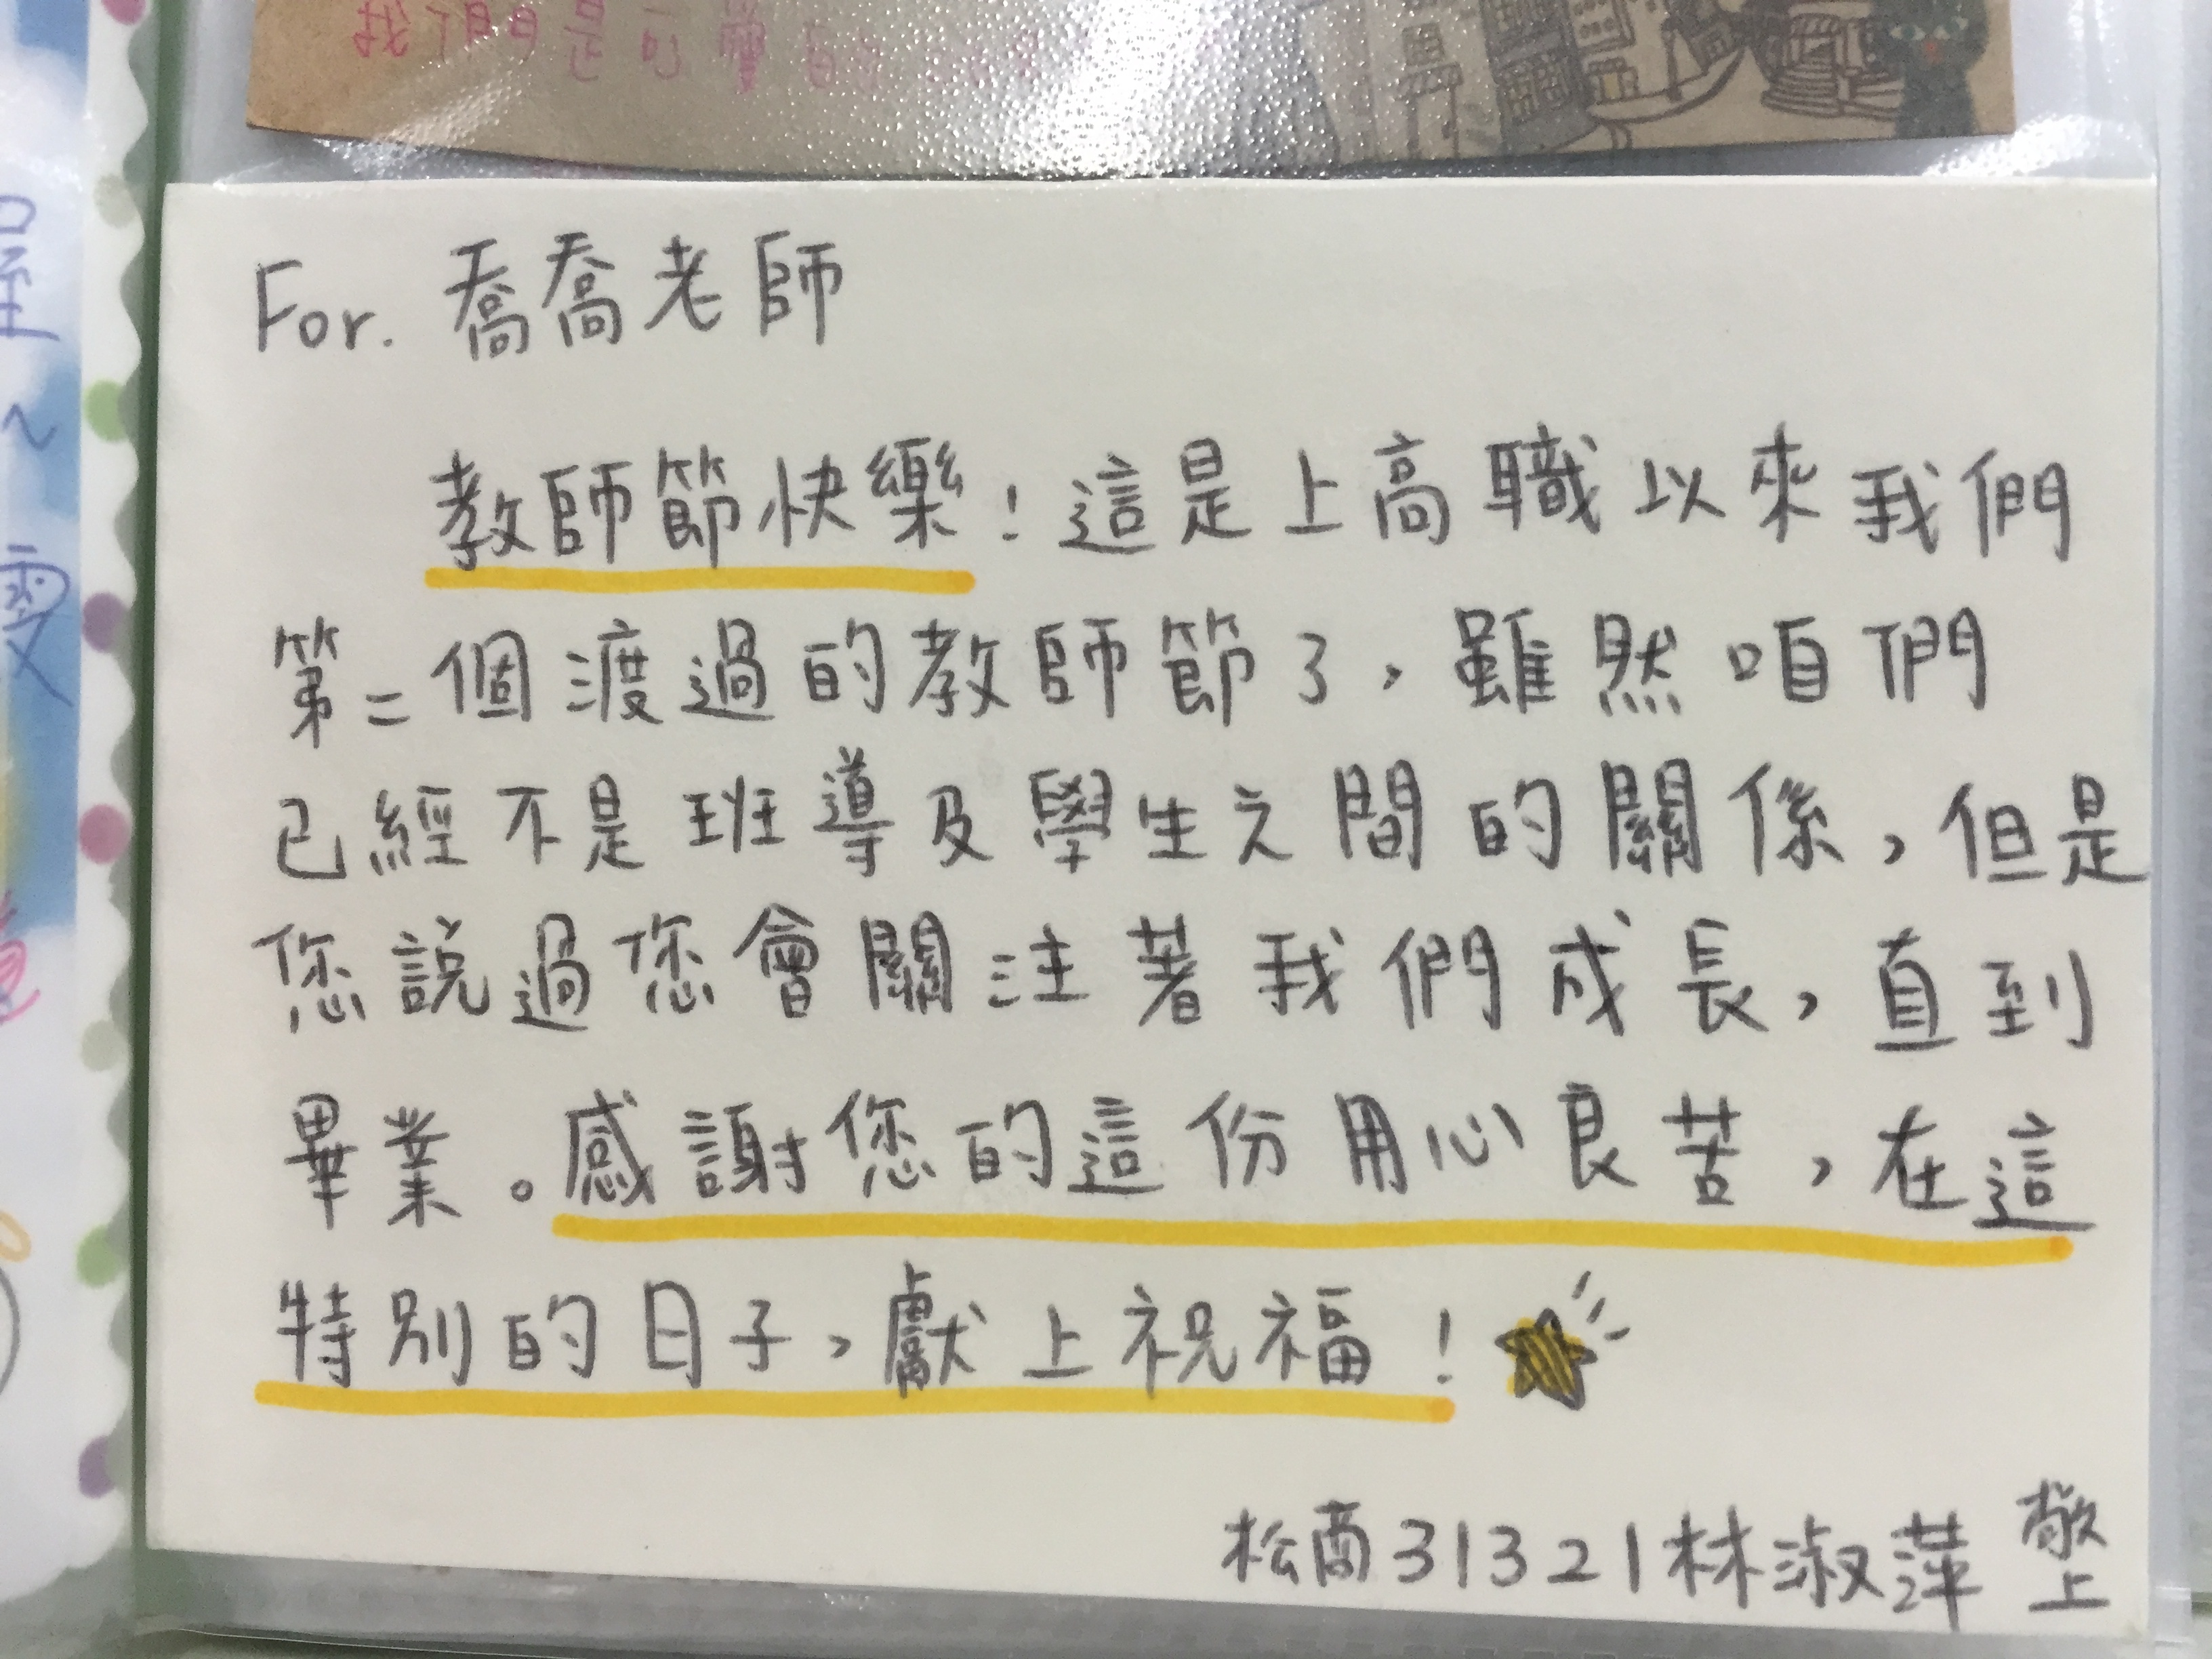 我們是可
For. 喬喬老師
教師節快樂!這是上高職以來我們
第二個渡過的教師節了,雖然咱們
已經不是班導及學生之間的關係,但是
您說過您會關注著我們成長,直到
畢業。感謝您的這份用心良苦,在這
特別的日子,獻上祝福!
松商31321林淑萍 敬上